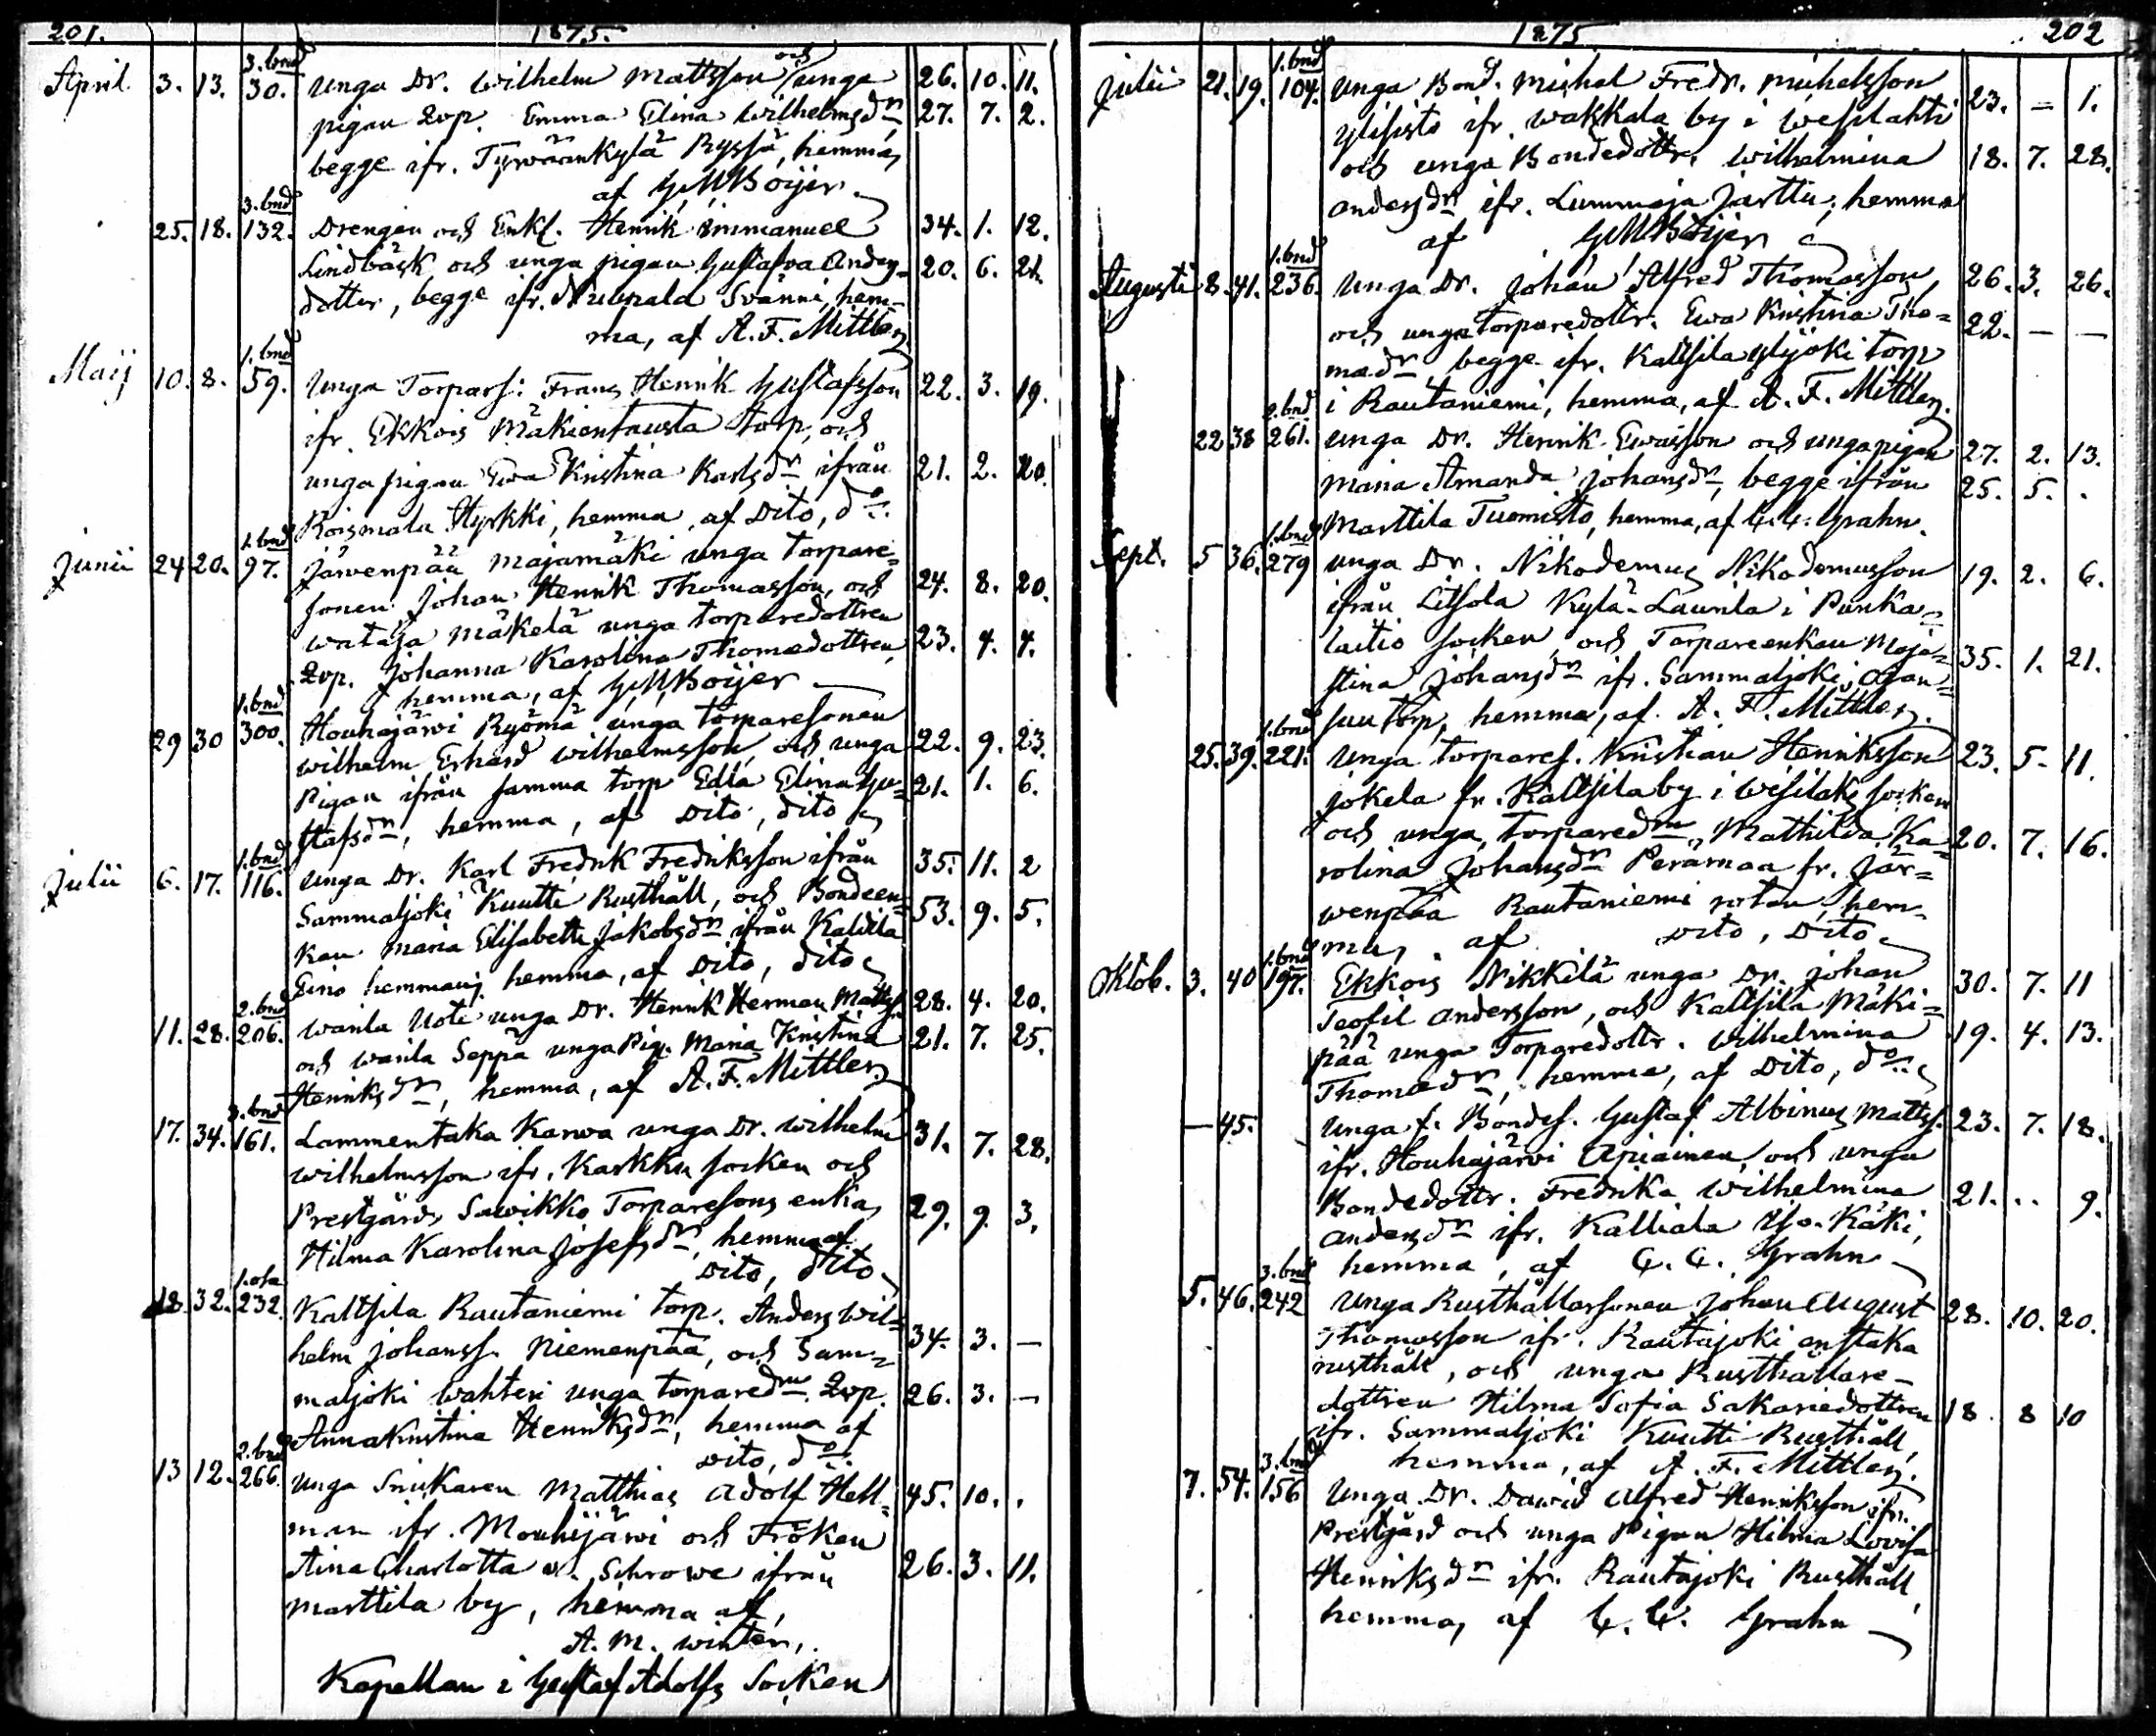 201. 1875.
April 3. 13. 3. bnd 30. unga Dr. Wilhelm Mattsson och unga 26. 10. 11.
pigan Qvp. Emma Elina Wilhelmsdr 27. 7. 2.
begge ifr. Tyrwäänkylä Ryssä, hemma,
af G M Boijer
25. 18. 3. bnd 132. Drengen och Enkl. Henrik Immanuel 34. 1. 12.
Lindbäck och unga pigan Gustafva Anders= 20. 6. 21.
dotter, begge ifr. Svänni, hem=
ma, af A. F. Mittler
Maij 10. 8. 1. bnd 59. Unga Torpars: Frans Henrik Gustafsson 22. 3. 19.
ifr. Ekkois Mäkientausta torp, och
unga pigan Ewa Kristina Karlsdr ifrån 21. 2. 20.
Roismala Hyrkki, hemma, af Dito, do.
Junii 24 20. 1. bnd 97. Järwenpää Majamäki unga torpare=
sonen Johan Henrik Thomasson, och 24. 8. 20.
Wataja Mäkelä unga torparedottren
Qvp. Johanna Karolina Thomædottren, 23. 4. 4.
hemma, af G M Boijer
29 30 1. bnd 300. Houhajärwi Ryömä unga torparesonen
Wilhelm Erhard Wilhelmsson, och unga 22. 9. 23.
Pigan ifrån samma torp Edla Elina Gu= 21. 1. 6.
stafsdr, hemma, af Dito, dito
Julii 6. 17. 1. bnd 116. Unga Dr. Karl Fredrik Fredriksson ifrån 35. 11. 2
Sammaljoki Kuutti Rusthåll, och Bondeen=
kan Maria Elisabeth Jakobsdr ifrån Kaldila 53. 9. 5.
Eino hemman, hemma, af Dito, dito
11. 28. 2. bnd 206. Warila Uoti unga Dr. Henrik Herman Mattss. 28. 4. 20.
och Warila Seppä unga Pig. Maria Kristina 21. 7. 25.
Henriksdr, hemma, af A. F. Mittler
17. 34. 3. bnd 161. Lammentaka Karwa unga Dr. Wilhelm 31. 7. 28.
Wilhelmsson ifr. Karkku socken och
Prestgårds Sawikko Torparesons enka, 29. 9. 3.
Hilma Karolina Josefsdr, hemma af
Dito, dito
18 32. 232. Kaltsila Rautaniemi torp. Anders Wil=
helm Johanss. Niemenpää, och Sam= 34. 3. —
maljoki Wahteri unga torparedm Qvp. 26. 3. —
Anna Kristina Henriksdr, hemma af
Dito, do.
13 12. 2. bnd 266. unga Snickaren Matthias Adolf Hell= 45. 10. .
man ifr. Mouhijärwi och Fröken
Aina Charlotta v. Schrowe ifrån 26. 3. 11.
Marttila by, hemma af,
A. M. Winter,
Kapellan i Gustaf Adolfs Socken
1875 202
Julii 21. 19. 1. bnd 104. Unga Bond. Michel Fredr. Michelsson 23. – 1.
Ylisisto ifr. Wakkala by i Wesilahti
och unga Bondedottr. Wilhelmina 18. 7. 28.
Andersdr ifr. Lummaja Jarttu, hemma
af G M Boijer
Augusti 8. 41. 1. bnd 236. Unga Dr. Johan Alfred Thomasson, 26. 3. 26.
och unga torparedottr. Ewa Kristina Tho= 22. — —
mædr begge ifr. Kaltsila Ylijoki torp
i Rautaniemi, hemma, af A. F. Mittler.
22 38 2. bnd 261. Unga Dr. Henrik Ewasson och unga pigan 27. 2. 13.
Maria Amanda Johansdr, begge ifrån 25. 5. .
Marttila Tuomisto, hemma, af C. C. Grahn.
Sept. 5 36. 1. bnd 279 unga Dr. Nikodemus Nikodemusson 19. 2. 6.
ifrån Litsola Kylä-Laurila i Punka=
laitio socken, och Torpareenkan Maja= 35. 1. 21.
stina Johansdr ifr. Sammaljoki Ojan=
suu torp, hemma, af A. F. Mittler.
25. 39. 1. bnd 221. Unga torpares. Kristian Henriksson 23. 5. 11.
Jokela fr. Kaltsila by i Wesilaks socken
och unga torparedm Mathilda Ka= 20. 7. 16.
rolina Johansdr Perämaa fr. Jär=
wenpää Rautaniemi rotan, hem=
ma, af Dito, Dito
Oktob. 3. 40 1. bnd 197. Ekkois Nikkilä unga Dr. Johan 30. 7. 11
Teofil Andersson, och Kaltsila Mäki=
pää unga Torparedottr. Wilhelmina 19. 4. 13.
Thomædr, hemma, af Dito, do.
— 45. Unga f. Bondes. Gustaf Albinus Mattss. 23. 7. 18.
ifr. Houhajärwi Apiainen, och unga
Bondedottr. Fredrika Wilhelmina 21. .. 9.
Andersdr ifr. Kalliala Iso-Käki,
hemma, af C. C. Grahn
5. 46. 3. bnd 242 Unga Rusthållarsonen Johan August 28. 10. 20.
Thomasson ifr. Rautajoki Anstaka
rusthåll, och unga Rusthållare=
dottren Hilma Sofia Sakariedottren 18. 8 10
ifr. Sammaljoki Kuutti Rusthåll,
hemma, af A. F. Mittler.
7. 54. 3. bnd 156 Unga Dr. Dawid Alfred Henriksson ifr.
Prestgård och unga Pigan Hilma Lovisa
Henriksdr ifr. Rautajoki Rusthåll,
hemma, af C. C. Grahn